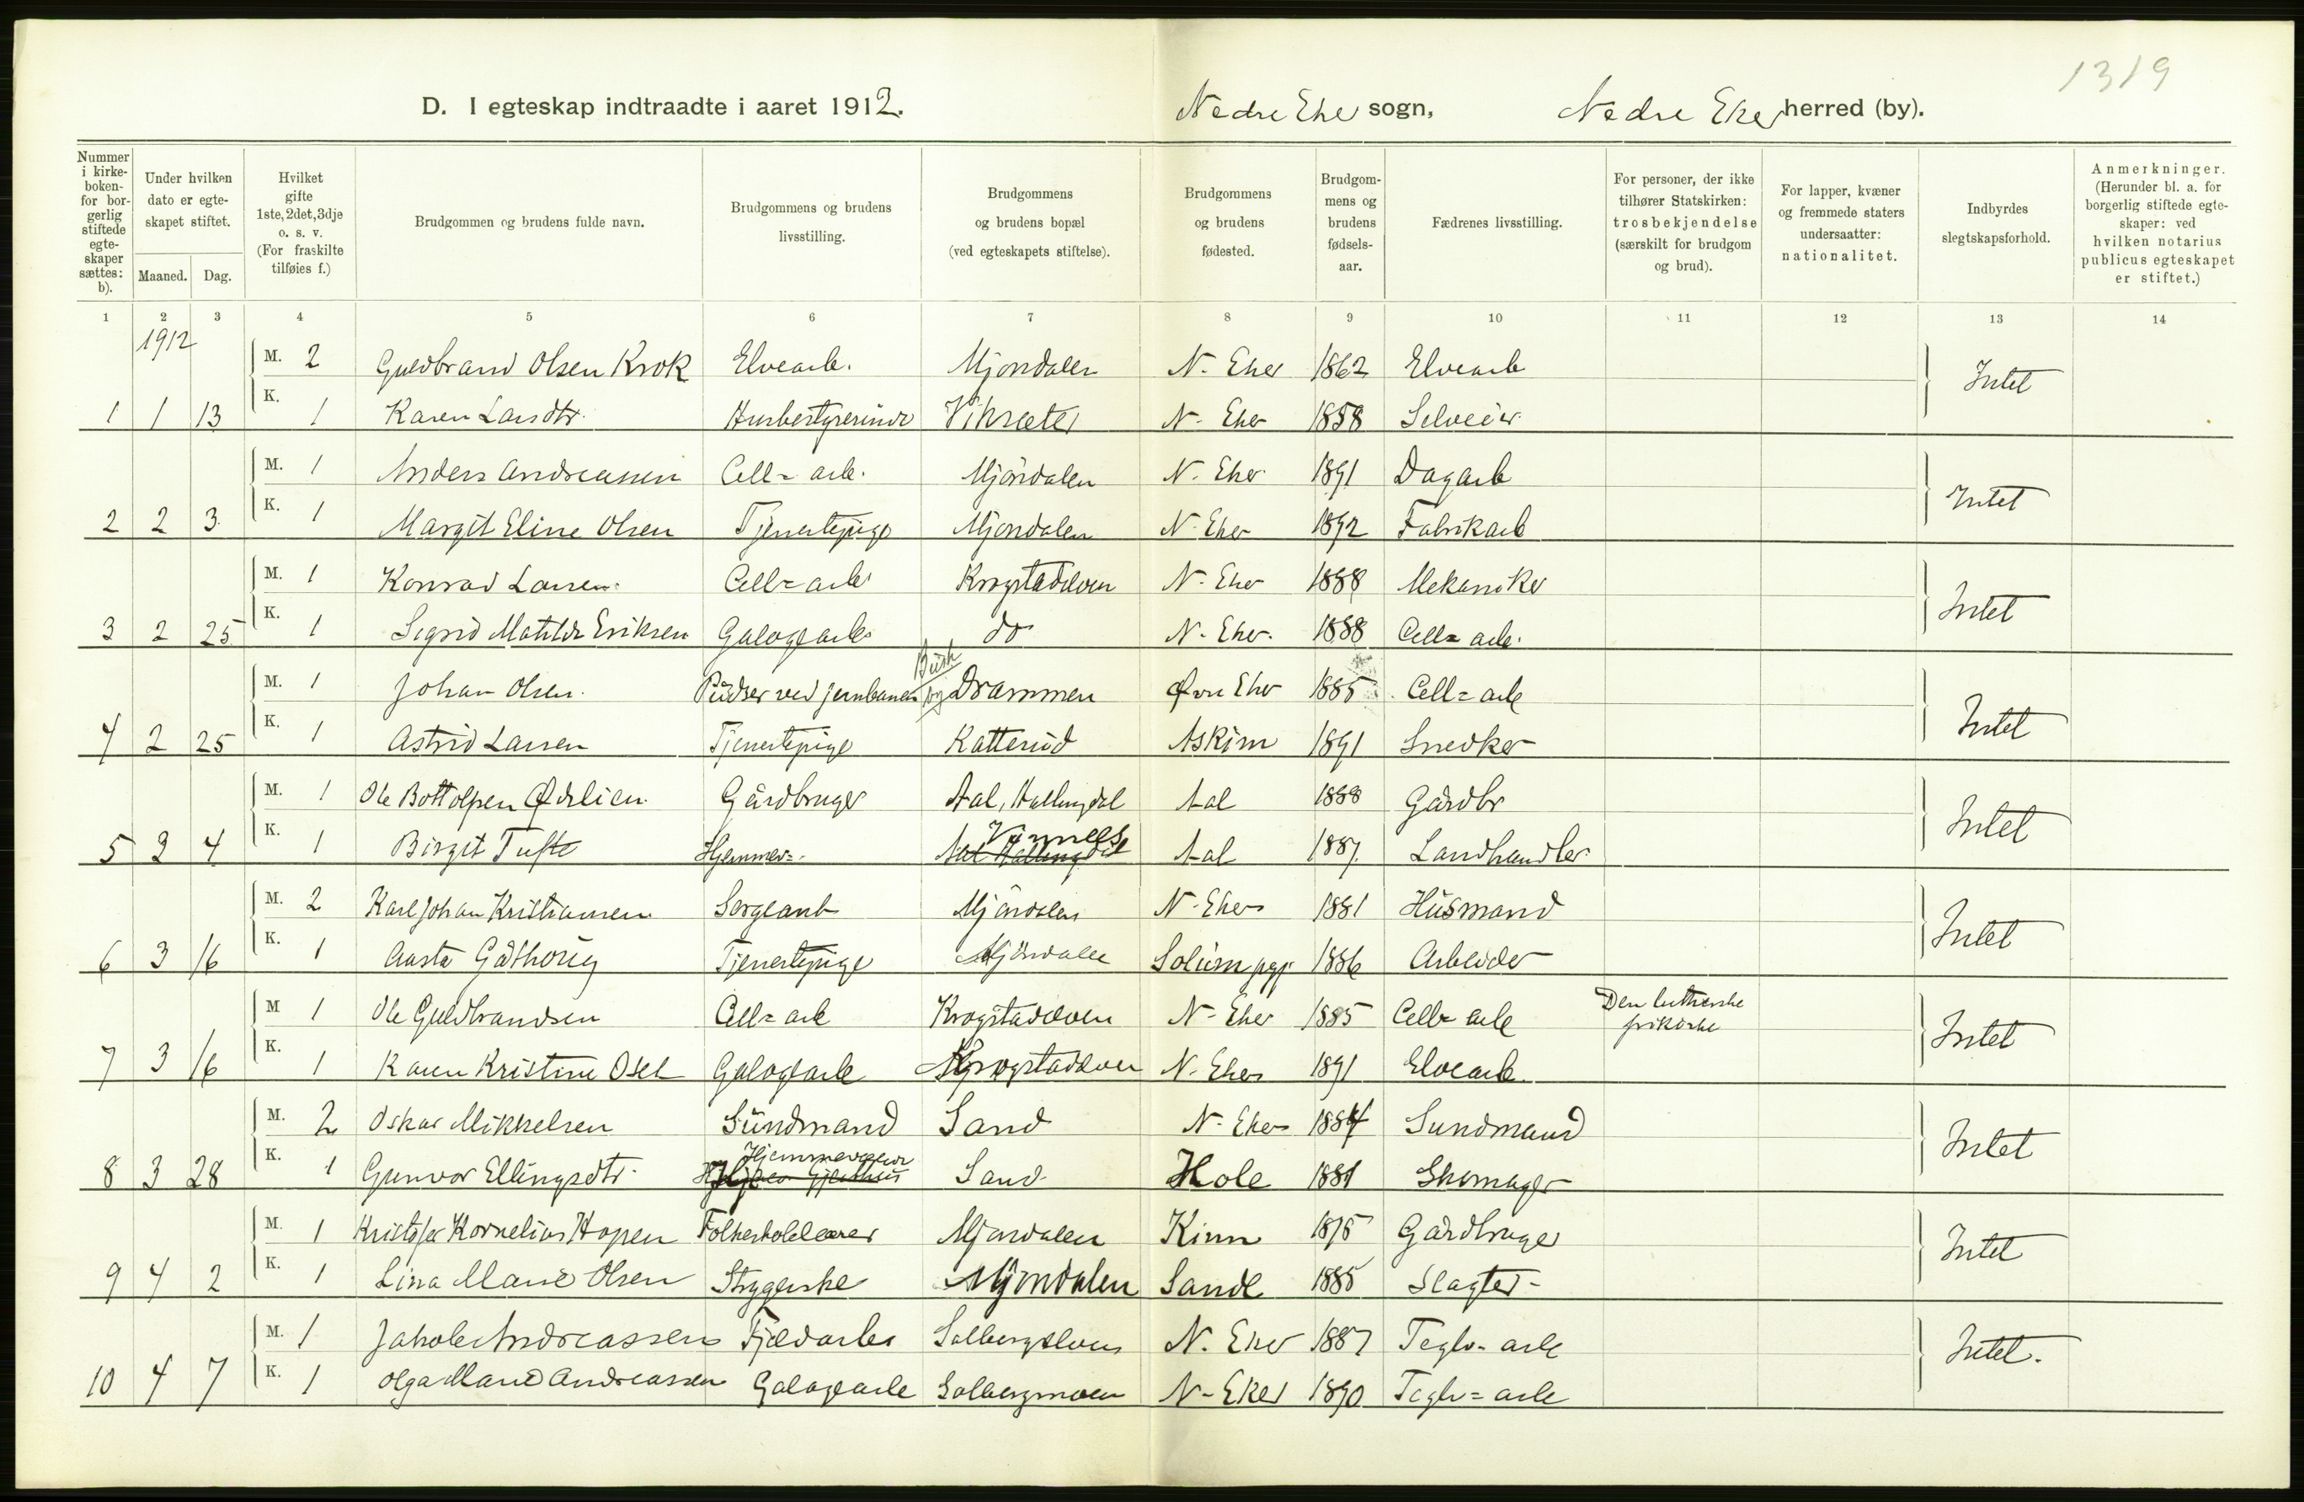 1319
D. I egteskap indtraadte i aaret 1912. Nedre Eker sogn, Nedre Eker herred (by).
Nummer i kirkeboken for borgerlig stiftede egteskaper sættes: b). | Under hvilken dato er egteskapet stiftet. Maaned. Dag. | Hvilket gifte 1ste, 2det, 3dje o. s. v. (For fraskilte tilføies f.) | Brudgommen og brudens fulde navn. | Brudgommens og brudens livsstilling. | Brudgommens og brudens bopæl (ved egteskapets stiftelse). | Brudgommens og brudens fødested. | Brudgommens og brudens fødselsaar. | Fædrenes livsstilling. | For personer, der ikke tilhører Statskirken: trosbekjendelse (særskilt for brudgom og brud). | For lapper, kvæner og fremmede staters undersaatter: nationalitet. | Indbyrdes slegtskapsforhold. | Anmerkninger. (Herunder bl. a. for borgerlig stiftede egteskaper: ved hvilken notarius publicus egteskapet er stiftet.)
1 2 3 4 5 6 7 8 9 10 11 12 13 14
1912
M. 2 Guldbrand Olsen Krok Elvearb. Mjondalen N. Eker 1862 Elvearb Intet
1 1 13 K. 1 Karen Larsdtr. Husbestyrerinde Vikseter N. Eker 1858 Selveier
M. 1 Anders Andreassen Cell= arb. Mjöndalen N. Eker 1891 Dagarb Intet
2 2 3. K. 1 Margit Eline Olsen Tjenestepige Mjondalen N. Eker 1892 Fabrikarb
M. 1 Konrad Larsen. Cell= arb Krogstadelven N. Eker 1888 Mekaniker Intet
3 2 25 K. 1 Sigrid Matilde Eriksen Galogearb do N. Eker. 1888 Cell= arb.
M. 1 Johan Olsen. Pudser ved jernbanen Drammen Øvre Eker 1885 Cell= arb Intet
4 2 25 K. 1 Astrid Larsen Tjenestepige Katterud Askim 1891 Snedker
M. 1 Ole Bottolpen Ødelien Gårdbruger Aal, Hallingdal Aal 1888 Gårdbr Intet
5 3 4 K. 1 Birgit Tufte Hjemmev= Aal Hallingdal Aal 1887. Landhandler
M. 2 Karl Johan Kristiansen Sergeant Mjöndalen N. Eker 1881 Husmand Intet
6 3 16 K. 1 Aasta Gåthoug Tjenestepige Mjöndalen Solum pgj. 1886 Arbeider
M 1 Ole Guldbrandsen Cell= arb Krogstadelven N. Eker 1885 Cell= arb Den lutherske frikirke Intet
7 3 16 K. 1 Karen Kristine Oset Galogearb Krogstadelven N. Eker 1891 Elvearb.
M. 2 Oskar Mikkelsen Sundmand Sand N. Eker 1884 Sundmand Intet
8 3 28 K. 1 Gunvor Ellingsdtr. Hjemmeværende Sand Hole 1881 Skomager
M. 1 Kristofer Kornelius Hopen Folkeskolelærer Mjondalen Kinn 1875 Gårdbruger Intet
9 4 2 K. 1 Lina Marie Olsen Strygerske Mjöndalen Sande 1885 Slagter
M. 1 Jakob Andreassen Fjeldarb Solbergelven N. Eker 1887 Teglv= arb Intet.
10 4 7 K. 1 Olga Marie Andreassen Galogearb Solbergmoen N. Eker 1890 Teglv= arb